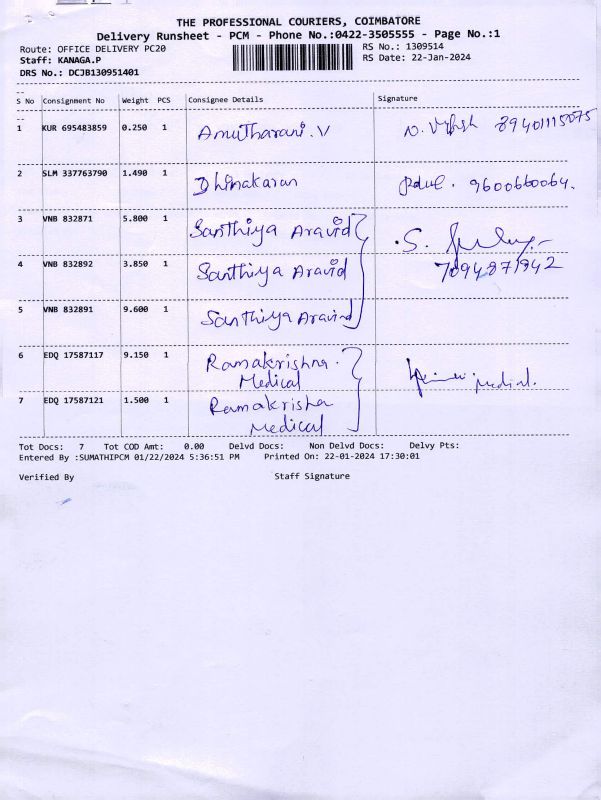 THE PROFESSIONAL COURIERS, COIMBATORE
Delivery Runsheet - PCM - Phone No.:0422-3505555 - Page No.:1
Route: OFFICE DELIVERY PC20 RS No.: 1309514
Staff: KANAGA.P RS Date: 22-Jan-2024
DRS No.: DCJB130951401
S No Consignment No Weight PCS Consignee Details Signature
1 KUR 695483859 0.250 1 Amutharani.V
2 SLM 337763790 1.490 1 Dhinakaran 9600660064.
3 VNB 832871 5.800 1 Santhiya Aravid S.
4 VNB 832892 3.850 1 Santhiya Aravid
5 VNB 832891 9.600 1 Santhiya Aravind
6 EDQ 17587117 9.150 1 Ramakrishna.
Medical medical.
7 EDQ 17587121 1.500 1 Ramakrisha
Medical
Tot Docs: 7 Tot COD Amt: 0.00 Delvd Docs: Non Delvd Docs: Delvy Pts:
Entered By :SUMATHIPCM 01/22/2024 5:36:51 PM Printed On: 22-01-2024 17:30:01
Verified By Staff Signature